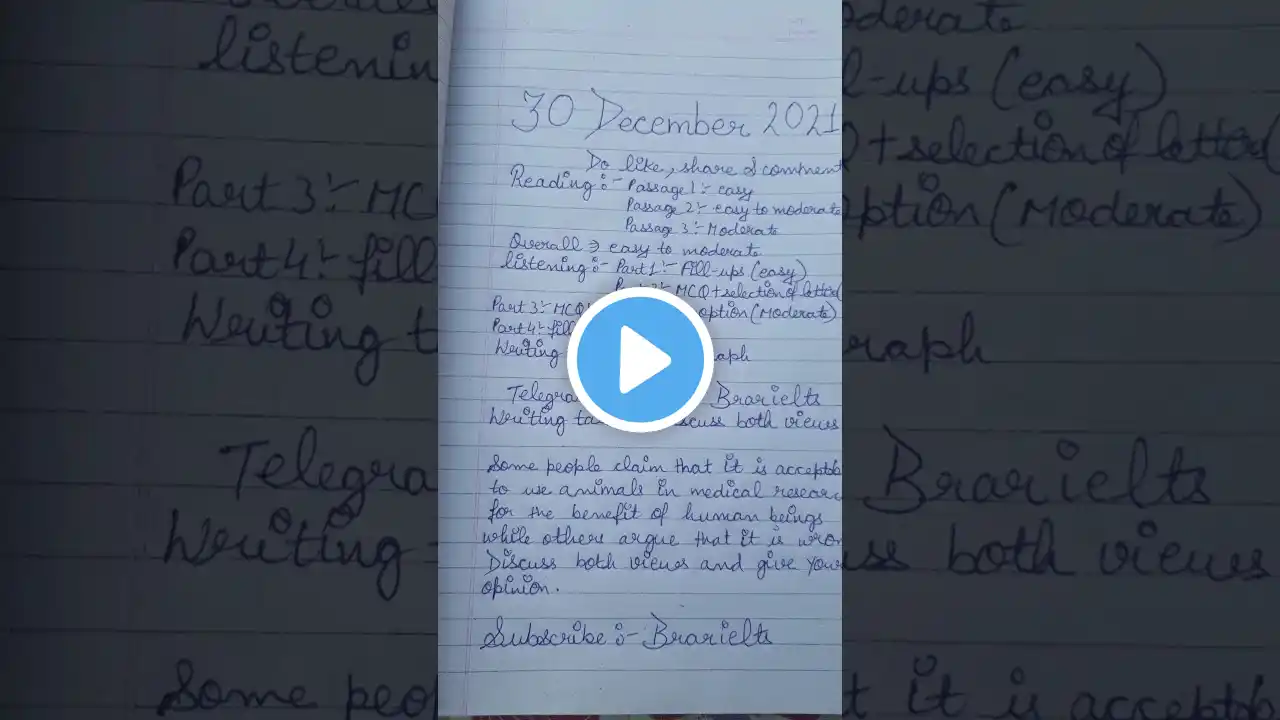 30 December 2021
Do like, share & comment
Reading :- Passage 1:- easy
Passage 2:- easy to moderate
Passage 3:- Moderate
Overall → easy to moderate
listening :- Part 1:- Fill-ups (easy)
MCQ + selection of letter(
Part 3:- MCQ option (Moderate)
Part 4:- fill
Writing raph
Telegra Brarielts
Writing ta scuss both views
Some people claim that it is acceptab
to use animals in medical resear
for the benefit of human beings
while others argue that it is wro
Discuss both views and give you
opinion.
Subscribe :- Brarielts